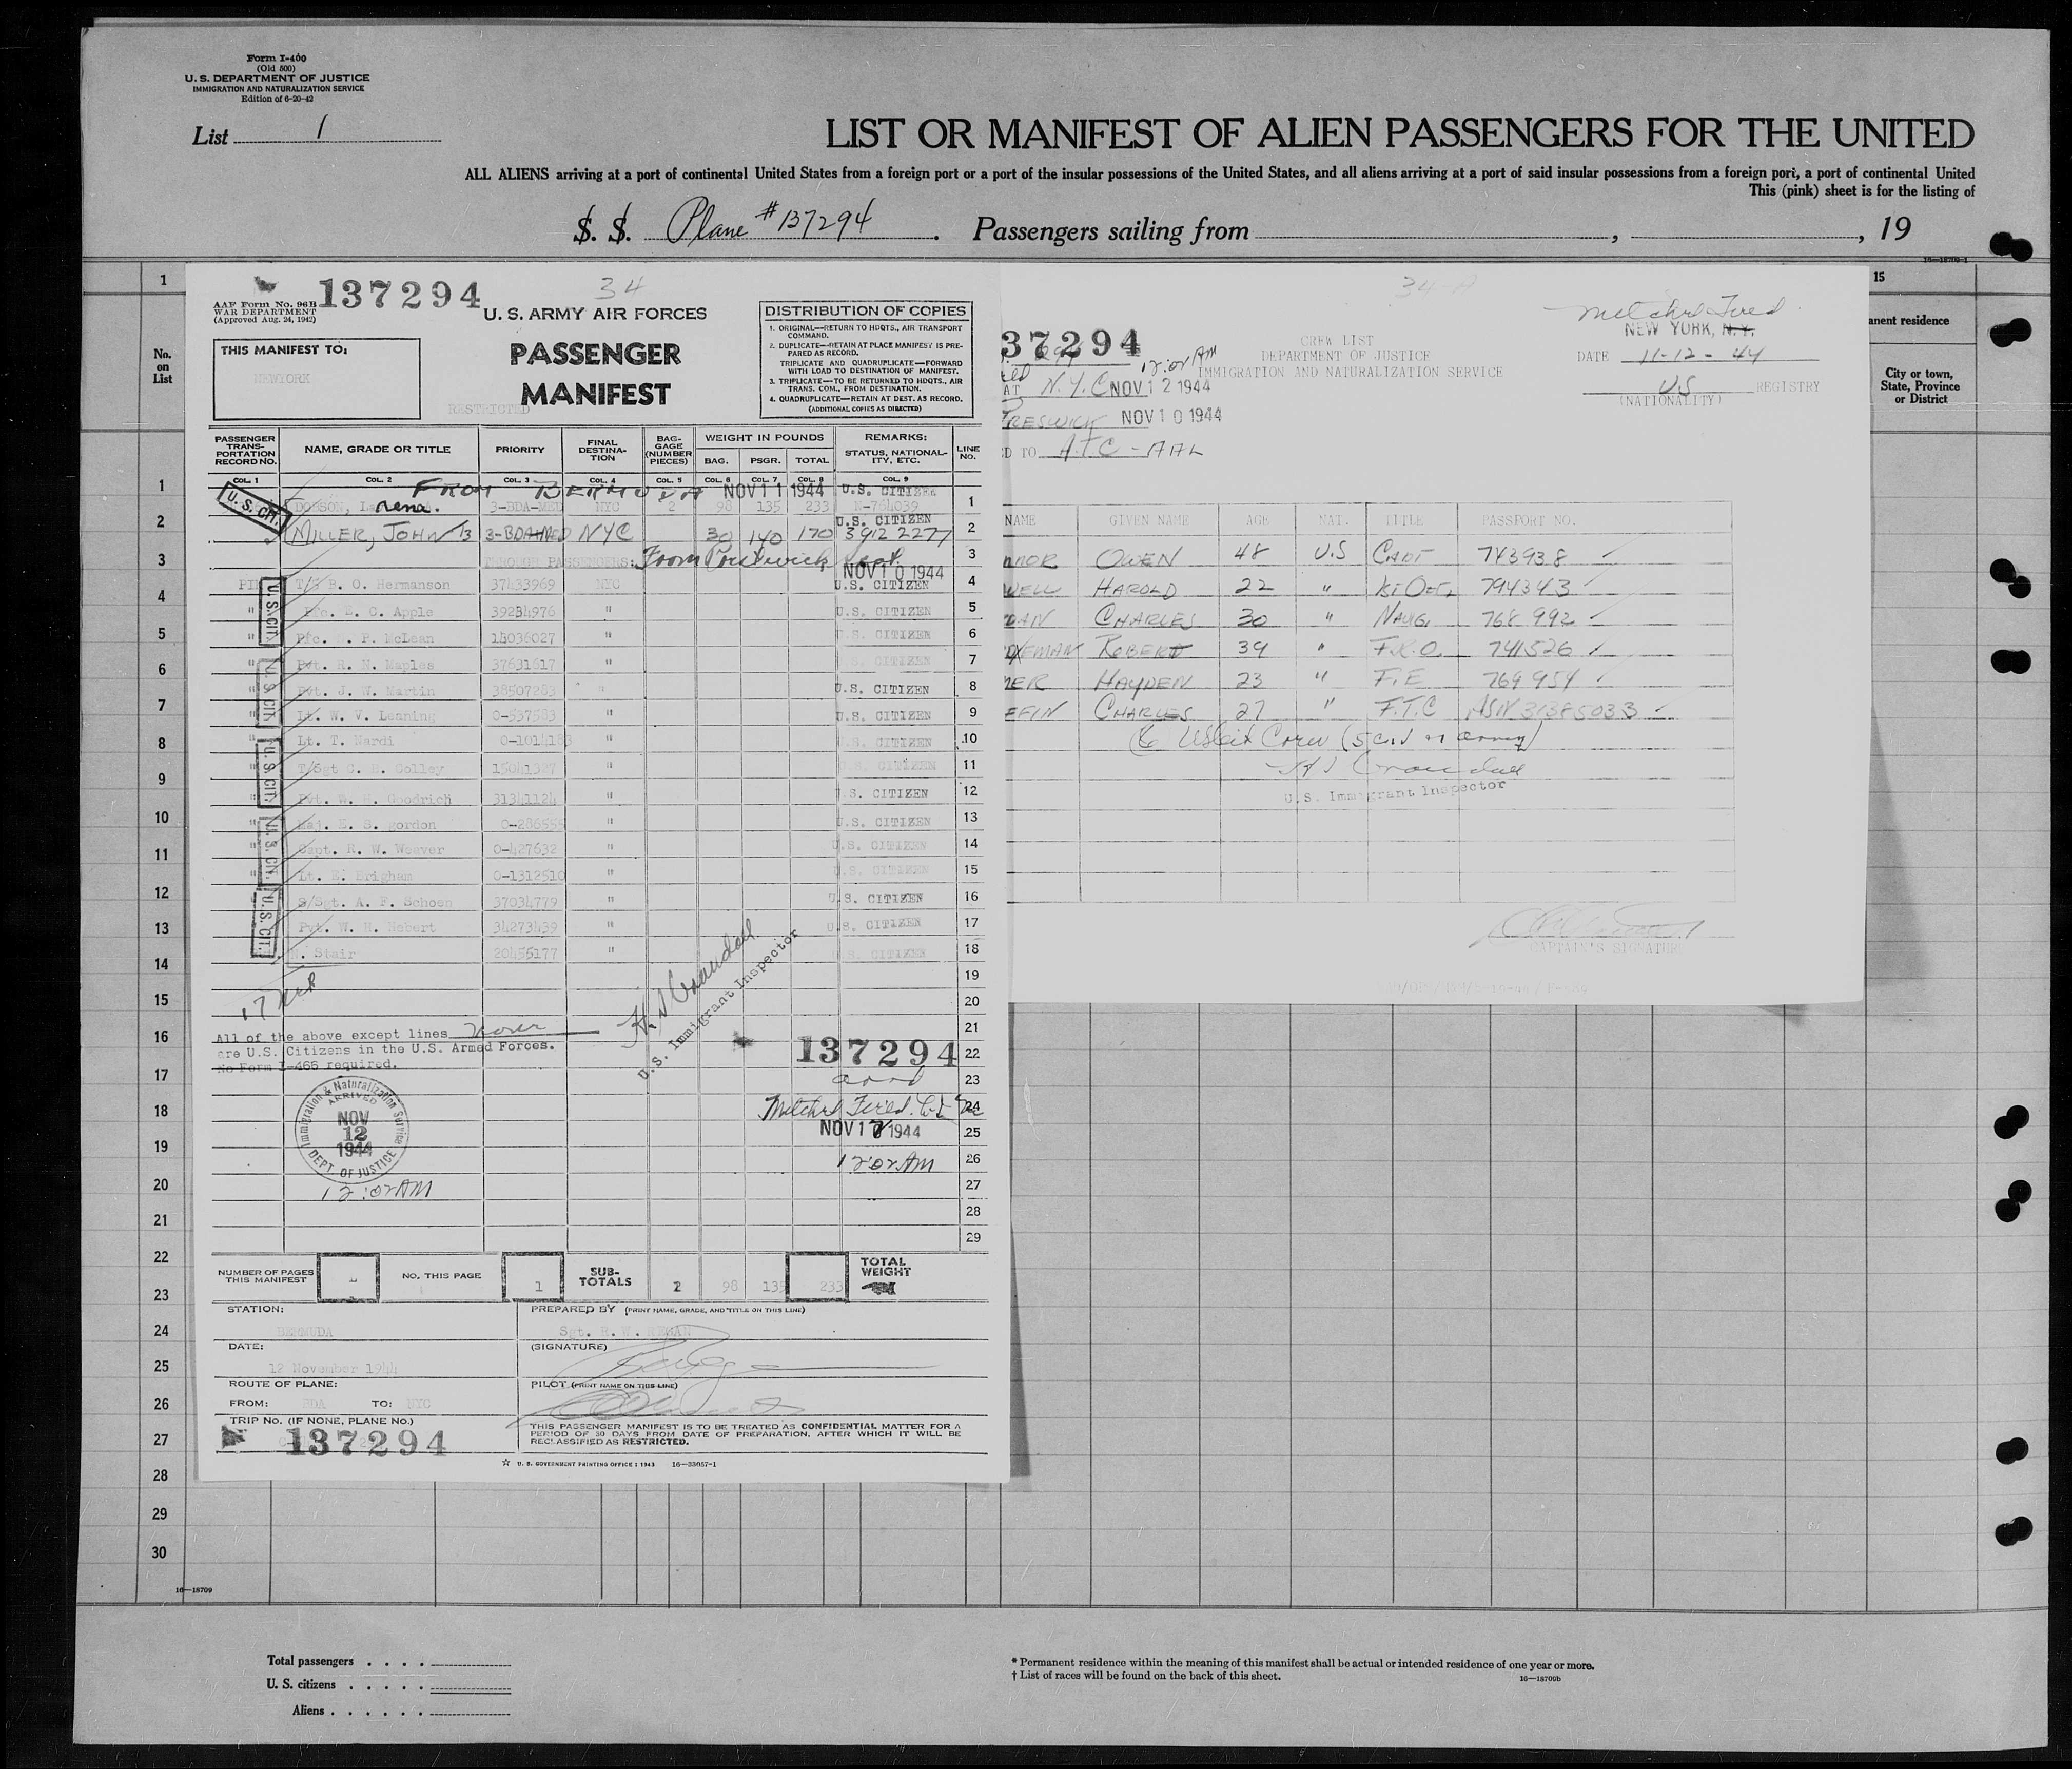 Form I-400
(Old 500)
U. S. DEPARTMENT OF JUSTICE
IMMIGRATION AND NATURALIZATION SERVICE
Edition of 6-20-42
List 1
LIST OR MANIFEST OF ALIEN PASSENGERS FOR THE UNITED
ALL ALIENS arriving at a port of continental United States from a foreign port or a port of the insular possessions of the United States, and all aliens arriving at a port of said insular possessions from a foreign port, a port of continental United
This (pink) sheet is for the listing of
S. S. Plane #137294. Passengers sailing from , , 19
16—18709-1
1
15
No. on List
anent residence
City or town, State, Province or District
AAF Form No. 96B
WAR DEPARTMENT
(Approved Aug. 24, 1942)
137294
34
U. S. ARMY AIR FORCES
PASSENGER
MANIFEST
THIS MANIFEST TO:
NEWYORK
RESTRICTED
DISTRIBUTION OF COPIES
1. ORIGINAL—RETURN TO HDQTS., AIR TRANSPORT COMMAND.
2. DUPLICATE—RETAIN AT PLACE MANIFEST IS PREPARED AS RECORD.
TRIPLICATE AND QUADRUPLICATE—FORWARD WITH LOAD TO DESTINATION OF MANIFEST.
3. TRIPLICATE—TO BE RETURNED TO HDQTS., AIR TRANS. COM., FROM DESTINATION.
4. QUADRUPLICATE—RETAIN AT DEST. AS RECORD.
(ADDITIONAL COPIES AS DIRECTED)
PASSENGER TRANSPORTATION RECORD NO. NAME, GRADE OR TITLE PRIORITY FINAL DESTINATION BAGGAGE (NUMBER PIECES) WEIGHT IN POUNDS REMARKS: STATUS, NATIONALITY, ETC. LINE NO.
BAG. PSGR. TOTAL
COL. 1 COL. 2 COL. 3 COL. 4 COL. 5 COL. 6 COL. 7 COL. 8 COL. 9
FROM BERMUDA NOV 11 1944 U.S. CITIZEN
U.S. CIT. DOBSON, Larena. 3-BDA-MED NYC 2 98 135 233 N-764039 1
U.S. CITIZEN
MILLER, JOHN B 3-BDA-MED NYC 30 140 170 39122277 2
THROUGH PASSENGERS: From Prestwick NOV 10 1944 3
T/5 B. O. Hermanson 37433969 NYC U.S. CITIZEN 4
" Pfc. E. C. Apple " U.S. CITIZEN 5
" Pfc. P. McLean 14036027 " U.S. CITIZEN 6
Pvt. R. N. Maples 37631617 " U.S. CITIZEN 7
" Pvt. J. W. Martin 38507283 " U.S. CITIZEN 8
" Lt. W. V. Leaning O-537583 " U.S. CITIZEN 9
" Lt. T. Nardi " U.S. CITIZEN 10
" T/Sgt C. R. Colley 15041327 " U.S. CITIZEN 11
" Pvt. W. H. Goodrich 31341124 " U.S. CITIZEN 12
" Maj. E. S. gordon O-286555 " U.S. CITIZEN 13
" Capt. R. W. Weaver O-427632 " U.S. CITIZEN 14
" Lt. E. Brigham O-1312510 " U.S. CITIZEN 15
" S/Sgt. A. F. Schoen 37034779 " U.S. CITIZEN 16
" Pvt. W. H. Hebert 34273439 " U.S. CITIZEN 17
Stair 20456177 " U.S. CITIZEN 18
U.S. CIT.
U.S. CIT.
U.S. CIT.
U.S. CIT.
U.S. CIT.
19
20
21
22
23
24
25
26
27
28
29
17
All of the above except lines none
are U.S. Citizens in the U.S. Armed Forces.
No Form I-466 required.
H. J. Crandall
U.S. Immigrant Inspector
137294
Immigration & Naturalization Service
ARRIVED
NOV
12
1944
DEPT. OF JUSTICE
12:02 AM
Mitchel Field
NOV 12 1944
12:02 AM
NUMBER OF PAGES THIS MANIFEST NO. THIS PAGE 1 SUB-TOTALS 2 98 135 233 TOTAL WEIGHT
STATION: BERMUDA
PREPARED BY (PRINT NAME, GRADE, AND TITLE ON THIS LINE)
Sgt. R. W.
DATE: 12 November 1944
(SIGNATURE)
ROUTE OF PLANE:
FROM: BDA TO: NYC
PILOT (PRINT NAME ON THIS LINE)
TRIP No. (IF NONE, PLANE NO.)
137294
THIS PASSENGER MANIFEST IS TO BE TREATED AS CONFIDENTIAL MATTER FOR A PERIOD OF 30 DAYS FROM DATE OF PREPARATION, AFTER WHICH IT WILL BE RECLASSIFIED AS RESTRICTED.
☆ U. S. GOVERNMENT PRINTING OFFICE : 1943 16—33057-1
34-A
Mitchel Field
NEW YORK, N.Y.
37294
12:02 AM
CREW LIST
DEPARTMENT OF JUSTICE
IMMIGRATION AND NATURALIZATION SERVICE
DATE 11-12-44
US REGISTRY
(NATIONALITY)
AT N.Y.C NOV 12 1944
PRESWICK NOV 10 1944
D TO A.T.C - AAL
NAME GIVEN NAME AGE NAT. TITLE PASSPORT NO.
NNOR OWEN 48 U.S CAPT 743938
WELL HAROLD 22 " 1st Off. 794343
DAN CHARLES 30 " NAVIG. 768992
EMAN ROBERT 39 " F.R.O. 741526
MER HAYDEN 23 " F.E 769954
EFIN CHARLES 27 " F.T.C ASN 31385033
6 USCit Crew (5 civ 1 army)
H J Crandall
U.S. Immigrant Inspector
CAPTAIN'S SIGNATURE
1
2
3
4
5
6
7
8
9
10
11
12
13
14
15
16
17
18
19
20
21
22
23
24
25
26
27
28
29
30
16—18709
Total passengers
U. S. citizens
Aliens
* Permanent residence within the meaning of this manifest shall be actual or intended residence of one year or more.
† List of races will be found on the back of this sheet.
16—18709b